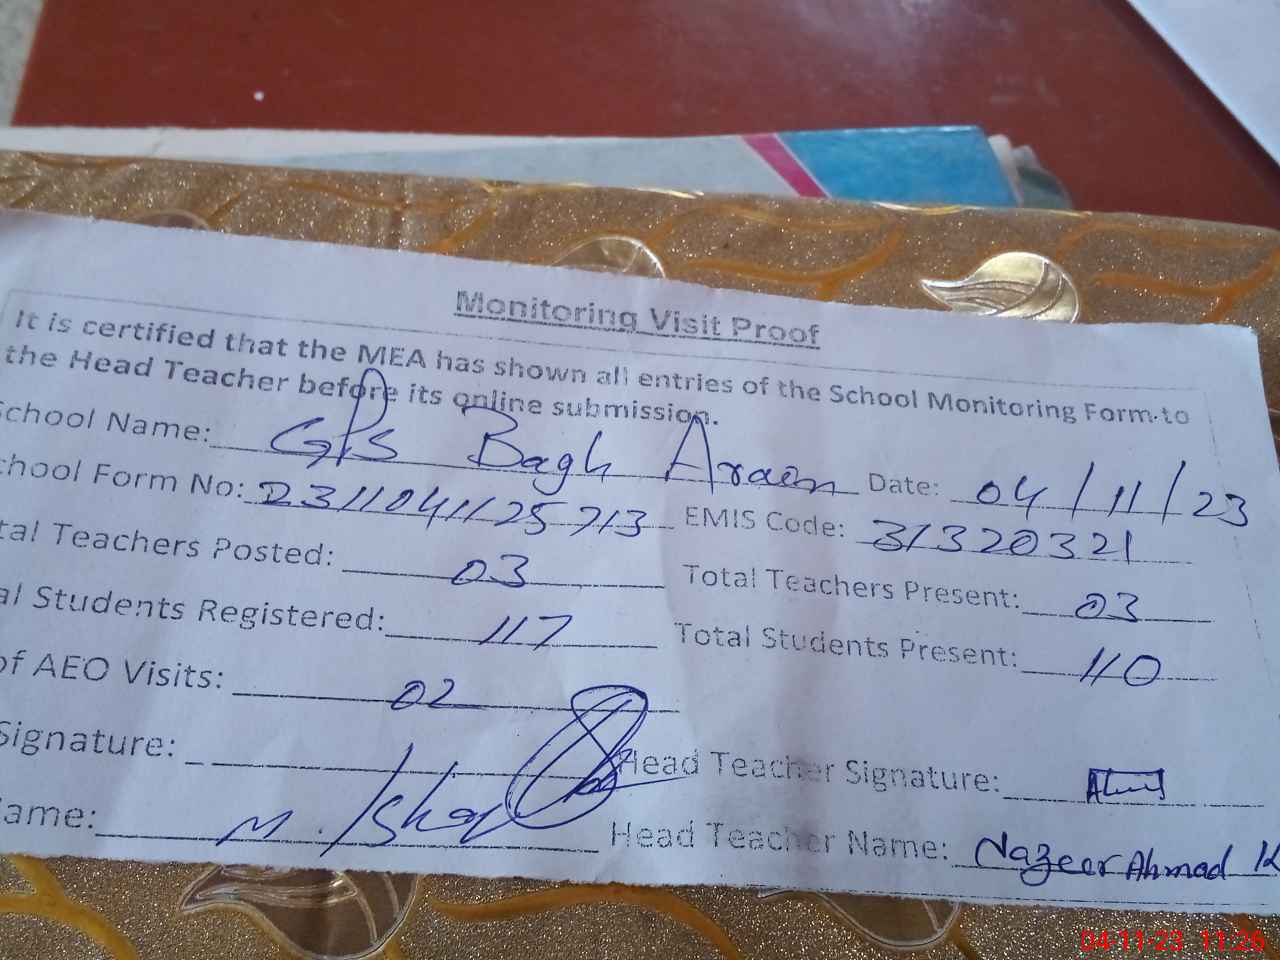 Monitoring Visit Proof
It is certified that the MEA has shown all entries of the School Monitoring Form to
the Head Teacher before its online submission.
School Name: GPS Bagh Araen Date: 04/11/23
chool Form No: 2311041125713 EMIS Code: 31320321
tal Teachers Posted: 03 Total Teachers Present: 03
al Students Registered: 117 Total Students Present: 110
of AEO Visits: 02
Signature: Head Teacher Signature:
ame: M. Ishaq Head Teacher Name: Nazeer Ahmad K
04-11-23 11:26